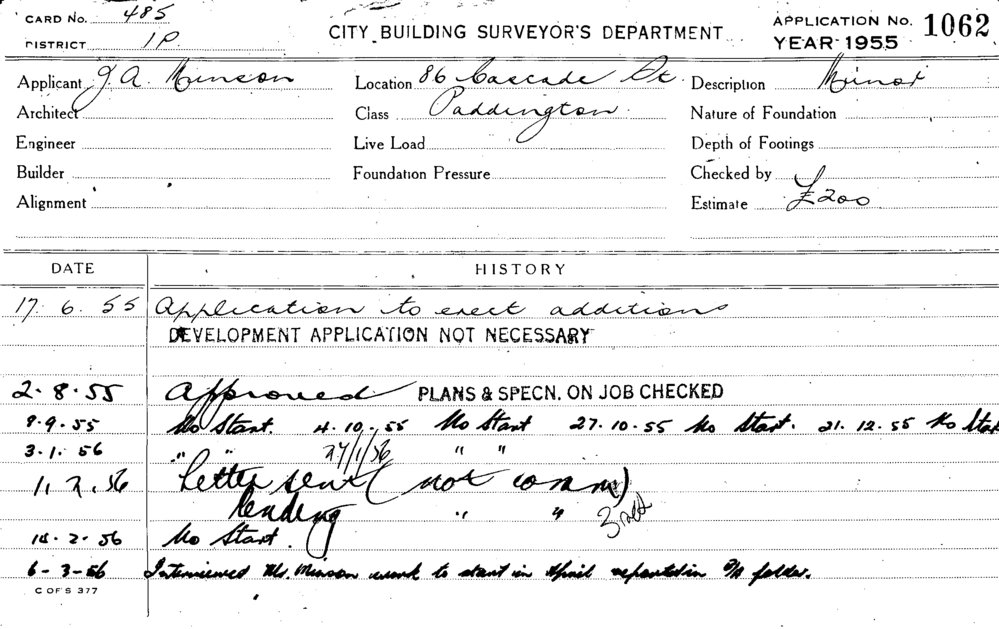 CARD No. 485
CITY BUILDING SURVEYOR'S DEPARTMENT
APPLICATION No. 1062
DISTRICT 1P.
YEAR 1955
Applicant J.A. Munson
Location 86 Cascade St.
Description Minor
Architect
Class Paddington
Nature of Foundation
Engineer
Live Load
Depth of Footings
Builder
Foundation Pressure
Checked by
Alignment
Estimate £200
DATE HISTORY
17. 6. 55 Application to erect additions
DEVELOPMENT APPLICATION NOT NECESSARY
2. 8. 55 Approved PLANS & SPECN. ON JOB CHECKED
9.9.55 No Start. 4.10.55 No Start 27.10.55 No Start. 21.12.55 No Start
3.1.56 " " 24/1/56 " "
1. 2. 56 Letter sent (not comm)
Pending " "
14. 2. 56 No Start.
6-3-56 Interviewed Mr. Minson work to start in April reported in folder.
C OF S 377